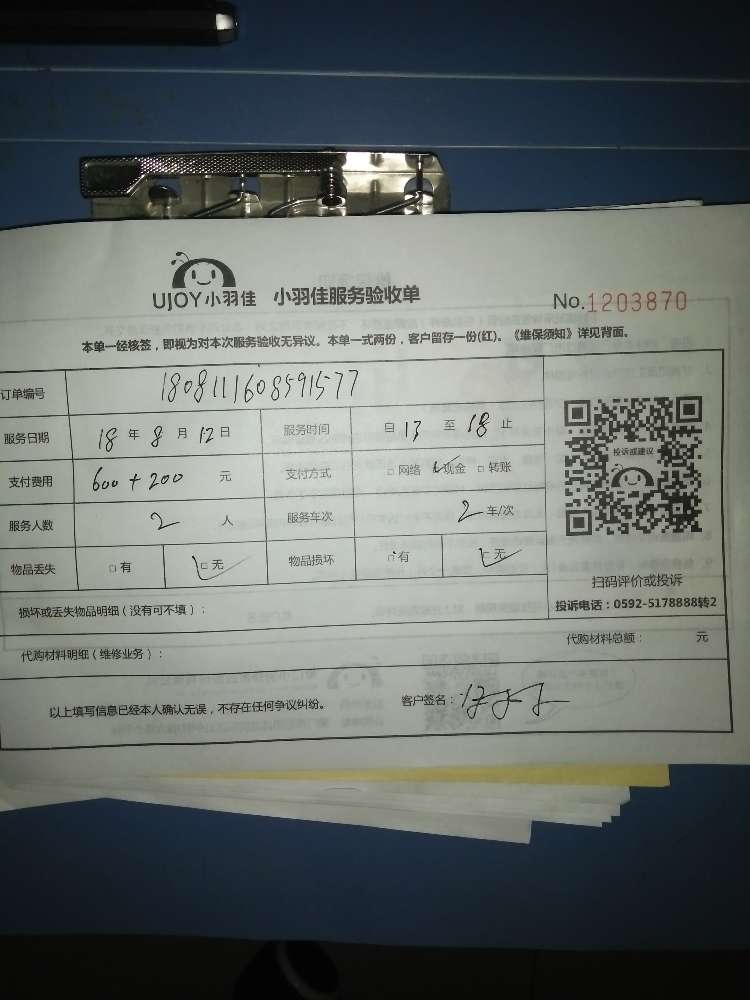 UJOY小羽佳 小羽佳服务验收单 No.1203870
本单一经核签，即视为对本次服务验收无异议。本单一式两份，客户留存一份(红)。《维保须知》详见背面。
订单编号 180811160859 1577
服务日期 18 年 8 月 12 日 服务时间 自 13 至 18 止
支付费用 600 + 200 元 支付方式 □ 网络 ✓现金 □ 转账
服务人数 2 人 服务车次 2 车/次
物品丢失 □ 有 □ 无 物品损坏 □ 有 □ 无
投诉或建议
扫码评价或投诉
投诉电话：0592-5178888转2
损坏或丢失物品明细（没有可不填）：
代购材料明细（维修业务）： 代购材料总额： 元
以上填写信息已经本人确认无误，不存在任何争议纠纷。 客户签名：